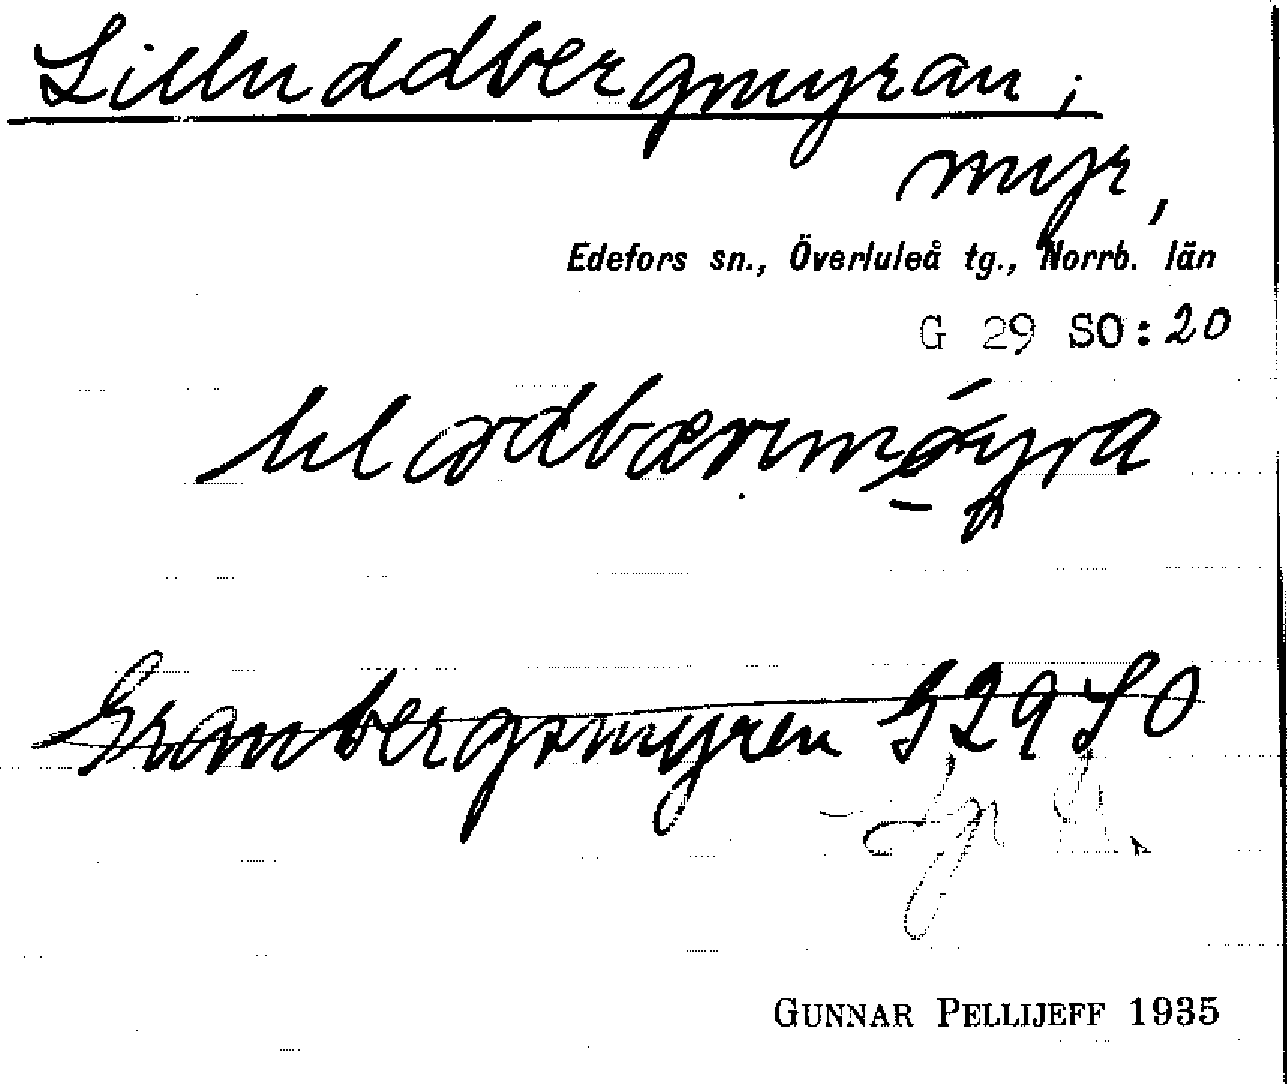 Lilluddbergmyran,
myr,
Edefors sn., Överluleå tg., Norrb. län
G 29 SO:20
Granbergsmyren G29 SO
GUNNAR PELLIJEFF 1935